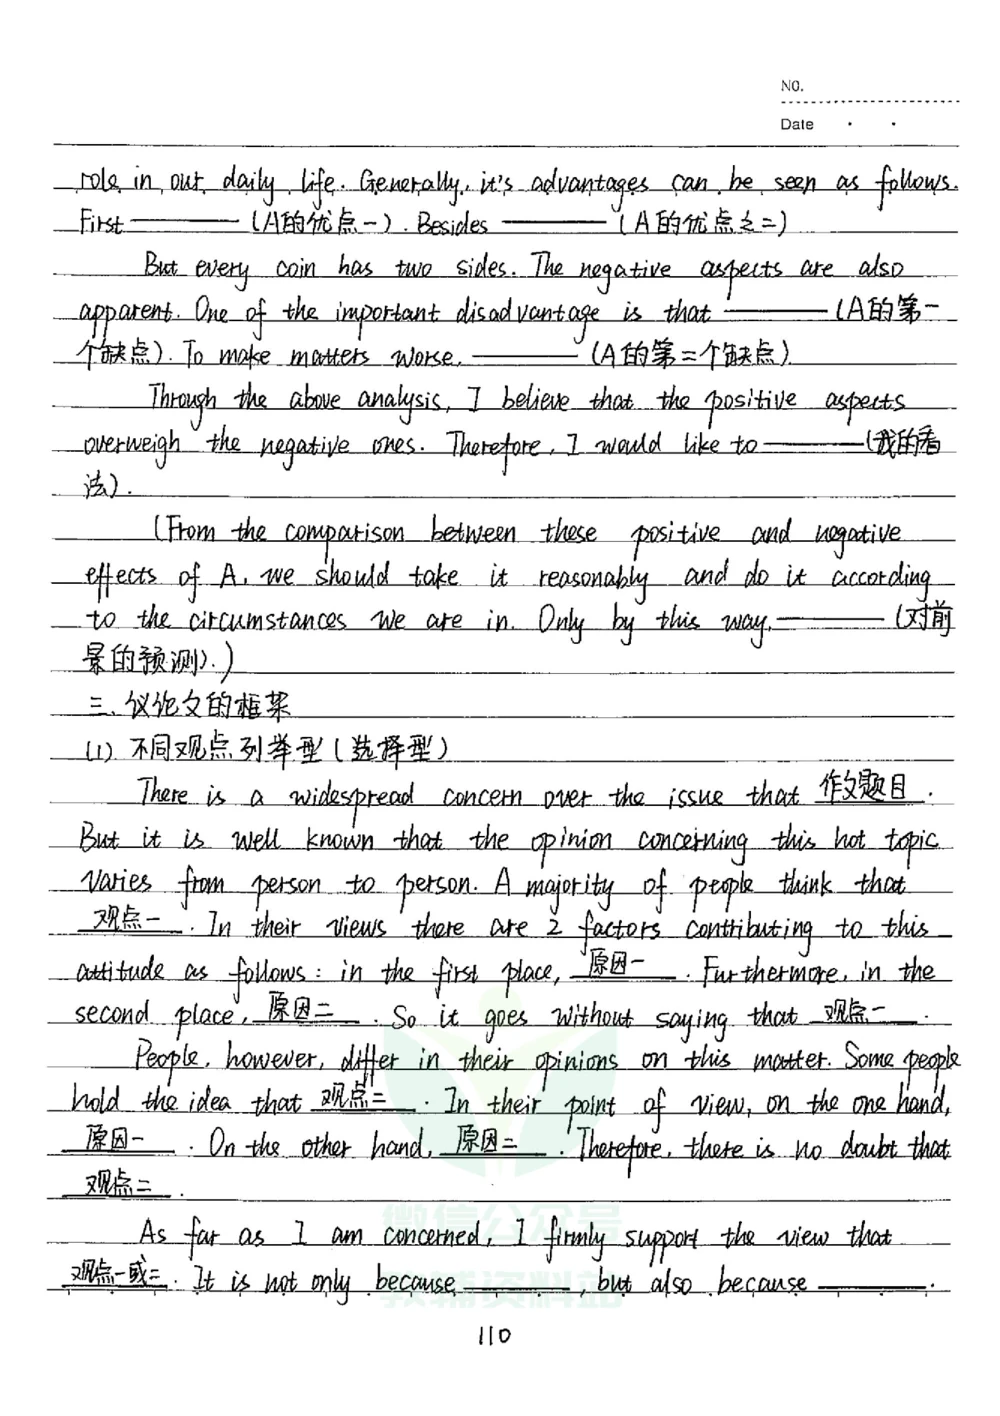 NO.
Date
role in our daily life. Generally, it's advantages can be seen as follows.
First ———— (A的优点一). Besides ———— (A的优点之二)
But every coin has two sides. The negative aspects are also
apparent. One of the important disadvantage is that ———— (A的第一
个缺点). To make matters worse, ———— (A的第二个缺点)
Through the above analysis, I believe that the positive aspects
overweigh the negative ones. Therefore, I would like to ———— (我的看
法).
(From the comparison between these positive and negative
effects of A, we should take it reasonably and do it according
to the circumstances we are in. Only by this way, ———— (对前
景的预测).)
三、议论文的框架
(1) 不同观点列举型(选择型)
There is a widespread concern over the issue that 作文题目.
But it is well known that the opinion concerning this hot topic
varies from person to person. A majority of people think that
观点一. In their views there are 2 factors contributing to this
attitude as follows: in the first place, 原因一. Furthermore, in the
second place, 原因二. So it goes without saying that 观点一.
People, however, differ in their opinions on this matter. Some people
hold the idea that 观点二. In their point of view, on the one hand,
原因一. On the other hand, 原因二. Therefore, there is no doubt that
观点二.
As far as I am concerned, I firmly support the view that
观点一或二. It is not only because ————, but also because ————.
微信公众号
教辅资料站
110